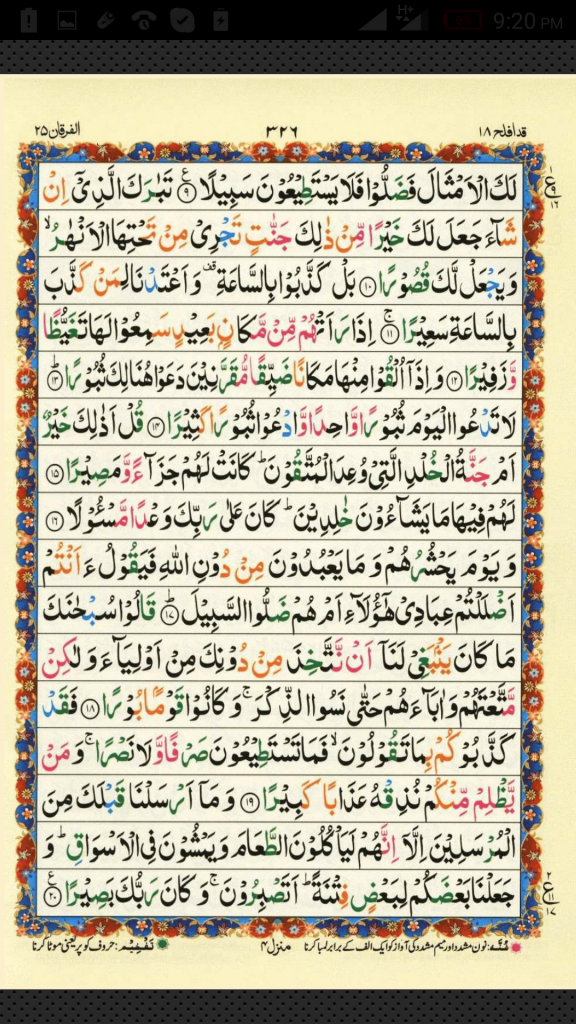 H+ 9:20 PM
قد افلح ١٨ ٣٢٦ الفرقان ٢٥
لَكَ الۡاَمۡثَالَ فَضَلُّوۡا فَلَا يَسۡتَطِيۡعُوۡنَ سَبِيۡلًا ﴿٩﴾ تَبٰرَكَ الَّذِىۡۤ اِنۡ
شَآءَ جَعَلَ لَكَ خَيۡرًا مِّنۡ ذٰ لِكَ جَنّٰتٍ تَجۡرِىۡ مِنۡ تَحۡتِهَا الۡاَنۡهٰرُ ۙ
وَيَجۡعَلْ لَّكَ قُصُوۡرًا ﴿١٠﴾ بَلۡ كَذَّبُوۡا بِالسَّاعَةِ وَاَعۡتَدۡنَا لِمَنۡ كَذَّبَ
بِالسَّاعَةِ سَعِيۡرًا ۚ﴿١١﴾ اِذَا رَاَتۡهُمۡ مِّنۡ مَّكَانٍۢ بَعِيۡدٍ سَمِعُوۡا لَهَا تَغَيُّظًا
وَّزَفِيۡرًا ﴿١٢﴾ وَاِذَاۤ اُلۡقُوۡا مِنۡهَا مَكَانًا ضَيِّقًا مُّقَرَّنِيۡنَ دَعَوۡا هُنَالِكَ ثُبُوۡرًا ؕ﴿١٣﴾
لَا تَدۡعُوا الۡيَوۡمَ ثُبُوۡرًا وَّاحِدًا وَّادۡعُوۡا ثُبُوۡرًا كَثِيۡرًا ﴿١٤﴾ قُلۡ اَذٰ لِكَ خَيۡرٌ
اَمۡ جَنَّةُ الۡخُـلۡدِ الَّتِىۡ وُعِدَ الۡمُتَّقُوۡنَ ؕ كَانَتۡ لَهُمۡ جَزَآءً وَّمَصِيۡرًا ﴿١٥﴾
لَهُمۡ فِيۡهَا مَا يَشَآءُوۡنَ خٰلِدِيۡنَ ؕ كَانَ عَلٰى رَبِّكَ وَعۡدًا مَّسۡـُٔوۡلًا ﴿١٦﴾
وَيَوۡمَ يَحۡشُرُهُمۡ وَمَا يَعۡبُدُوۡنَ مِنۡ دُوۡنِ اللّٰهِ فَيَقُوۡلُ ءَاَنۡـتُمۡ
اَضۡلَلۡـتُمۡ عِبَادِىۡ هٰٓؤُلَاۤءِ اَمۡ هُمۡ ضَلُّوا السَّبِيۡلَ ؕ﴿١٧﴾ قَالُوۡا سُبۡحٰنَكَ
مَا كَانَ يَنۡۢبَغِىۡ لَنَاۤ اَنۡ نَّـتَّخِذَ مِنۡ دُوۡنِكَ مِنۡ اَوۡلِيَآءَ وَلٰـكِنۡ
مَّتَّعۡتَهُمۡ وَاٰبَآءَهُمۡ حَتّٰى نَسُوا الذِّكۡرَ ۚ وَكَانُوۡا قَوۡمًۢا بُوۡرًا ﴿١٨﴾ فَقَدۡ
كَذَّبُوۡكُمۡ بِمَا تَقُوۡلُوۡنَ ۙ فَمَا تَسۡتَطِيۡعُوۡنَ صَرۡفًا وَّلَا نَصۡرًا ۚ وَمَنۡ
يَّظۡلِمۡ مِّنۡكُمۡ نُذِقۡهُ عَذَابًا كَبِيۡرًا ﴿١٩﴾ وَمَاۤ اَرۡسَلۡنَا قَبۡلَكَ مِنَ
الۡمُرۡسَلِيۡنَ اِلَّاۤ اِنَّهُمۡ لَيَاۡكُلُوۡنَ الطَّعَامَ وَيَمۡشُوۡنَ فِى الۡاَسۡوَاقِ ؕ وَ
جَعَلۡنَا بَعۡضَكُمۡ لِبَعۡضٍ فِتۡنَةً ؕ اَتَصۡبِرُوۡنَ ۚ وَكَانَ رَبُّكَ بَصِيۡرًا ﴿٢٠﴾
غُنَّہ: نون مشدد اور میم مشدد کی آواز کو ایک الف کے برابر لمبا کرنا منزل ٤ تَفْخِیْم: حروف کو پر یعنی موٹا کرنا